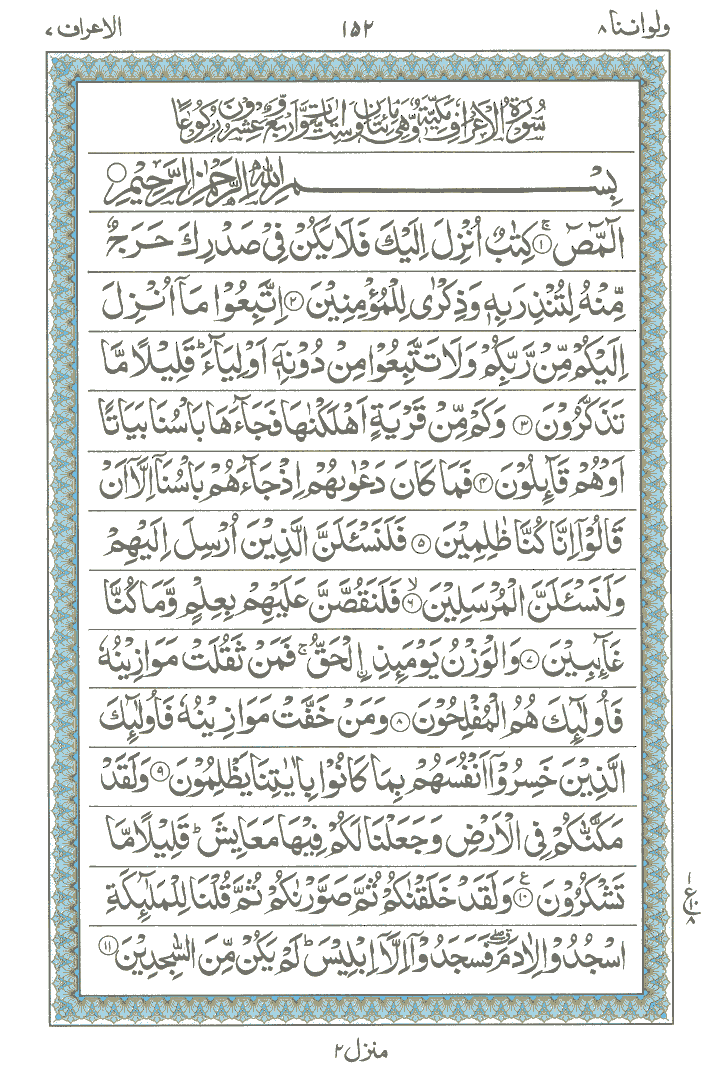 ولواننا ۸ ۱۵۲ الاعراف ۷
سُوْرَةُ الْاَعْرَافِ مَكِّيَّةٌ وَّهِيَ مِائَتَانِ وَسِتُّ اٰيَاتٍ وَّاَرْبَعٌ وَّعِشْرُوْنَ رُكُوْعًا
بِسْمِ اللّٰهِ الرَّحْمٰنِ الرَّحِيْمِ ○
الٓمّٓصٓ ۚ‏﴿۱﴾ كِتٰبٌ اُنْزِلَ اِلَيْكَ فَلَا يَكُنْ فِىْ صَدْرِكَ حَرَجٌ
مِّنْهُ لِتُنْذِرَ بِهٖ وَذِكْرٰى لِلْمُؤْمِنِيْنَ ﴿۲﴾ اِتَّبِعُوْا مَاۤ اُنْزِلَ
اِلَيْكُمْ مِّنْ رَّبِّكُمْ وَلَا تَتَّبِعُوْا مِنْ دُوْنِهٖۤ اَوْلِيَآءَ ؕ قَلِيْلًا مَّا
تَذَكَّرُوْنَ ﴿۳﴾ وَكَمْ مِّنْ قَرْيَةٍ اَهْلَكْنٰهَا فَجَآءَهَا بَاْسُنَا بَيَاتًا
اَوْ هُمْ قَآئِلُوْنَ ﴿۴﴾ فَمَا كَانَ دَعْوٰىهُمْ اِذْ جَآءَهُمْ بَاْسُنَاۤ اِلَّاۤ اَنْ
قَالُوْۤا اِنَّا كُنَّا ظٰلِمِيْنَ ﴿۵﴾ فَلَنَسْئَلَنَّ الَّذِيْنَ اُرْسِلَ اِلَيْهِمْ
وَلَنَسْئَلَنَّ الْمُرْسَلِيْنَ ۙ﴿۶﴾ فَلَنَقُصَّنَّ عَلَيْهِمْ بِعِلْمٍ وَّمَا كُنَّا
غَآئِبِيْنَ ﴿۷﴾ وَالْوَزْنُ يَوْمَئِذِ ۨالْحَقُّ ۚ فَمَنْ ثَقُلَتْ مَوَازِيْنُهٗ
فَاُولٰٓئِكَ هُمُ الْمُفْلِحُوْنَ ﴿۸﴾ وَمَنْ خَفَّتْ مَوَازِيْنُهٗ فَاُولٰٓئِكَ
الَّذِيْنَ خَسِرُوْۤا اَنْفُسَهُمْ بِمَا كَانُوْا بِاٰيٰتِنَا يَظْلِمُوْنَ ﴿۹﴾ وَلَقَدْ
مَكَّنّٰكُمْ فِى الْاَرْضِ وَجَعَلْنَا لَكُمْ فِيْهَا مَعَايِشَ ؕ قَلِيْلًا مَّا
تَشْكُرُوْنَ ﴿۱۰﴾ ع وَلَقَدْ خَلَقْنٰكُمْ ثُمَّ صَوَّرْنٰكُمْ ثُمَّ قُلْنَا لِلْمَلٰٓئِكَةِ
۱ ع ۱۰ ۸
اسْجُدُوْا لِاٰدَمَ ۖ فَسَجَدُوْۤا اِلَّاۤ اِبْلِيْسَ ؕ لَمْ يَكُنْ مِّنَ السّٰجِدِيْنَ ﴿۱۱﴾
منزل ۲